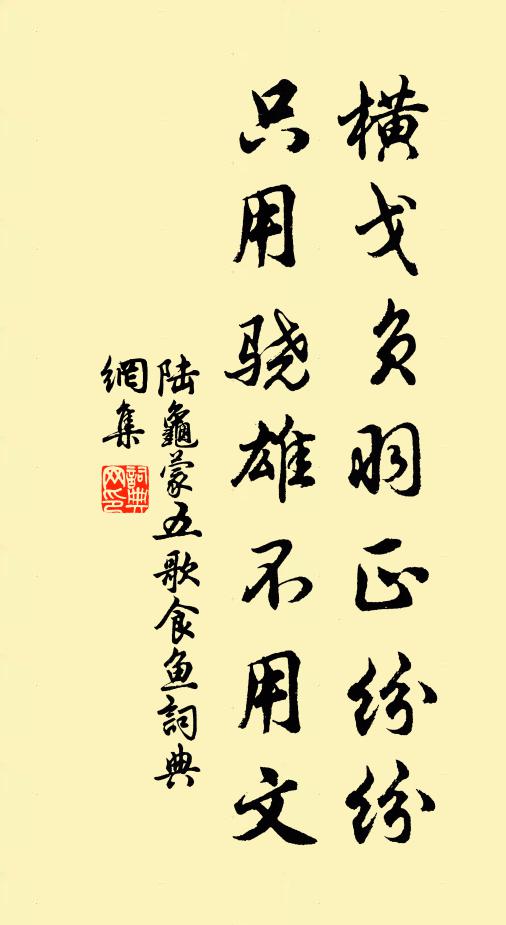 横戈负羽正纷纷
只用骁雄不用文
陆龜蒙五歌食鱼詞典
網集
詞典網印